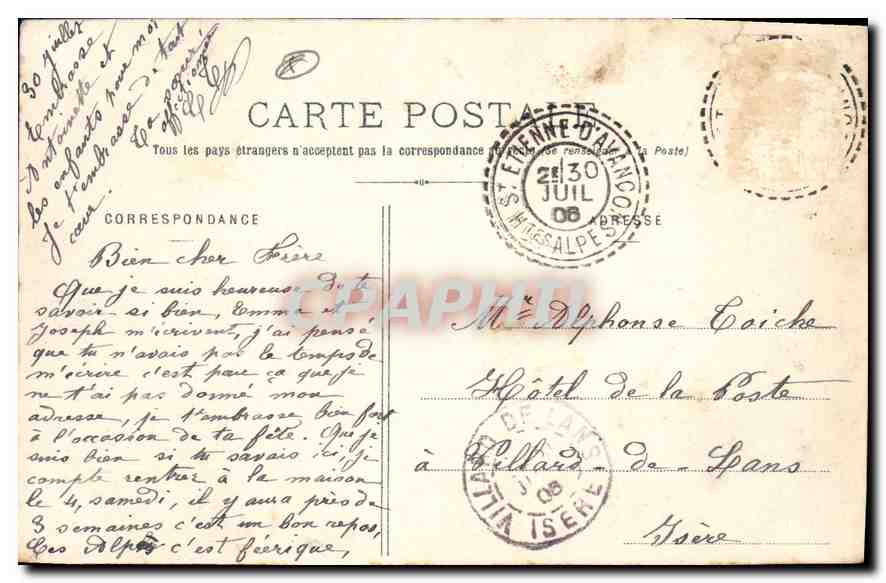 30 juillet
Embrasse
Antoinette et
les enfants pour moi
Je t'embrasse de tout
cœur.
CARTE POSTA
Tous les pays étrangers n'acceptent pas la correspondance (Se renseigner à la Poste)
ST ETIENNE-D'AVANÇON
2E 30
JUIL
08
HTES ALPES
CORRESPONDANCE
ADRESSE
Bien cher Frère
Que je suis heureuse de te
savoir si bien, Emma et
Joseph m'écrivent, j'ai pensé
que tu n'avais pas le temps de
m'écrire c'est parce ça que je
ne t'ai pas donné mon
adresse, je t'embrasse bien fort
à l'occasion de ta fête. Que je
suis bien si tu savais ici, je
compte rentrer à la maison
le 4, samedi, il y aura près de
3 semaines c'est un bon repos,
Ces Alpes c'est féerique,
CPAPHIL
Mr Alphonse Coiche
Hôtel de la Poste
à Villard-de-Lans
Isère
VILLARD DE LANS
08
ISÈRE